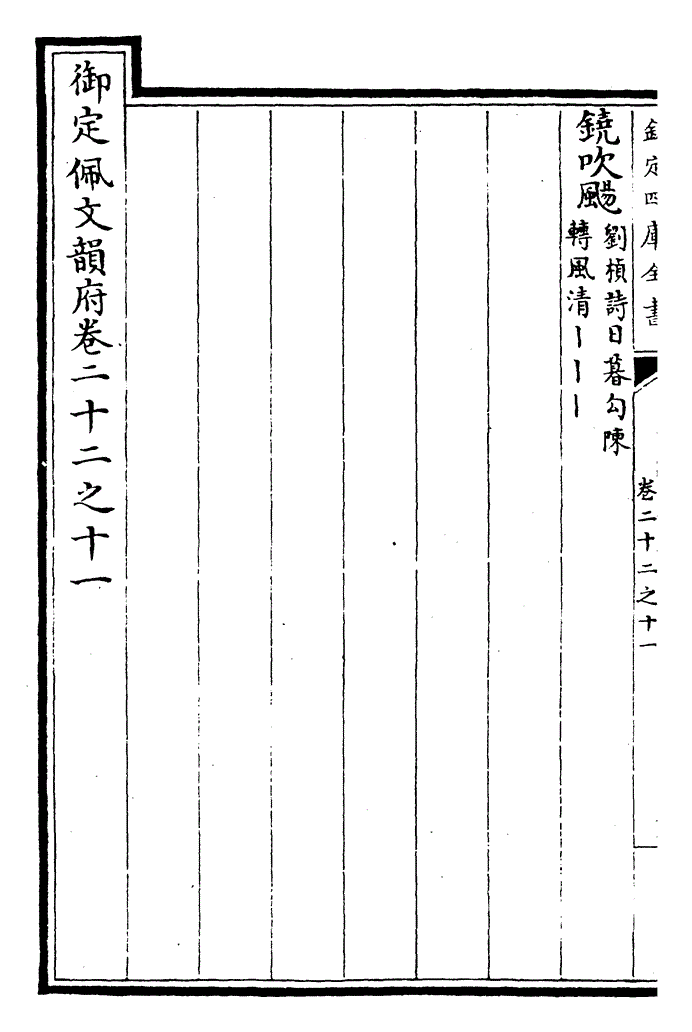 欽定四庫全書
卷二十二之十一
鐃吹颺
劉楨詩日暮勾陳
轉風清丨丨丨
御定佩文韻府卷二十二之十一